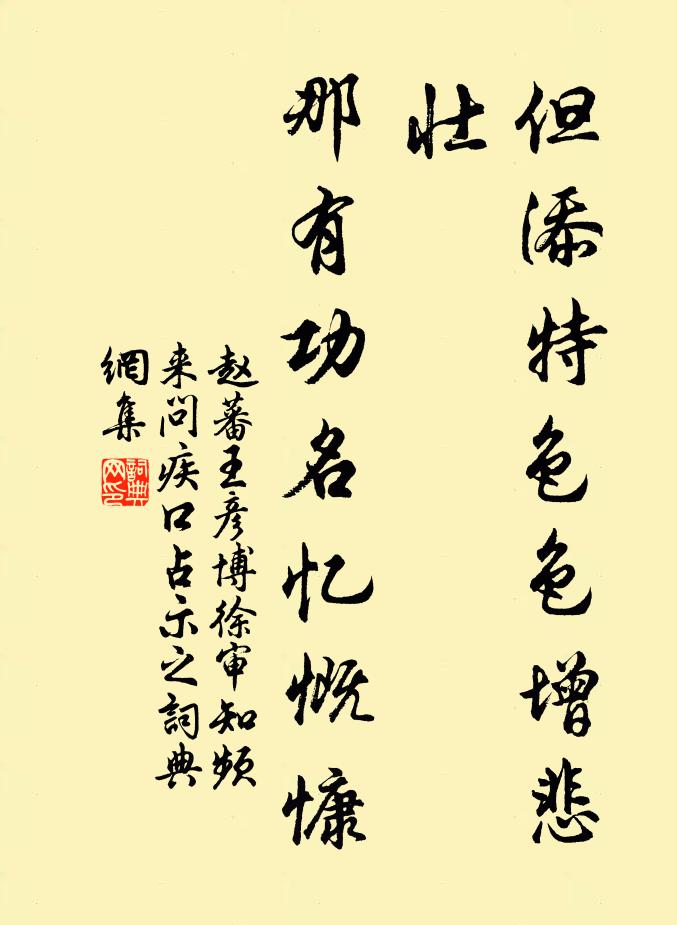 但添特色色增悲
壮
那有功名忆慨慷
赵蕃王彦博徐审知频
来问疾口占示之詞典
網集
詞典
网印